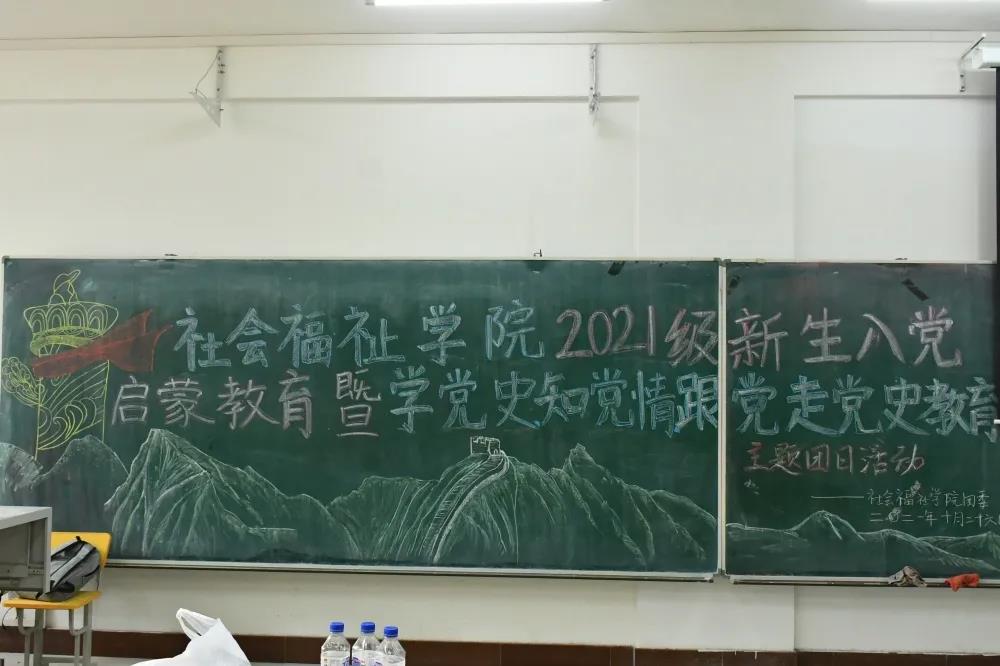 社会福祉学院2021级新生入党
启蒙教育暨学党史知党情跟党走党史教育
主题团日活动
——社会福祉学院团委
二〇二一年十月二十六